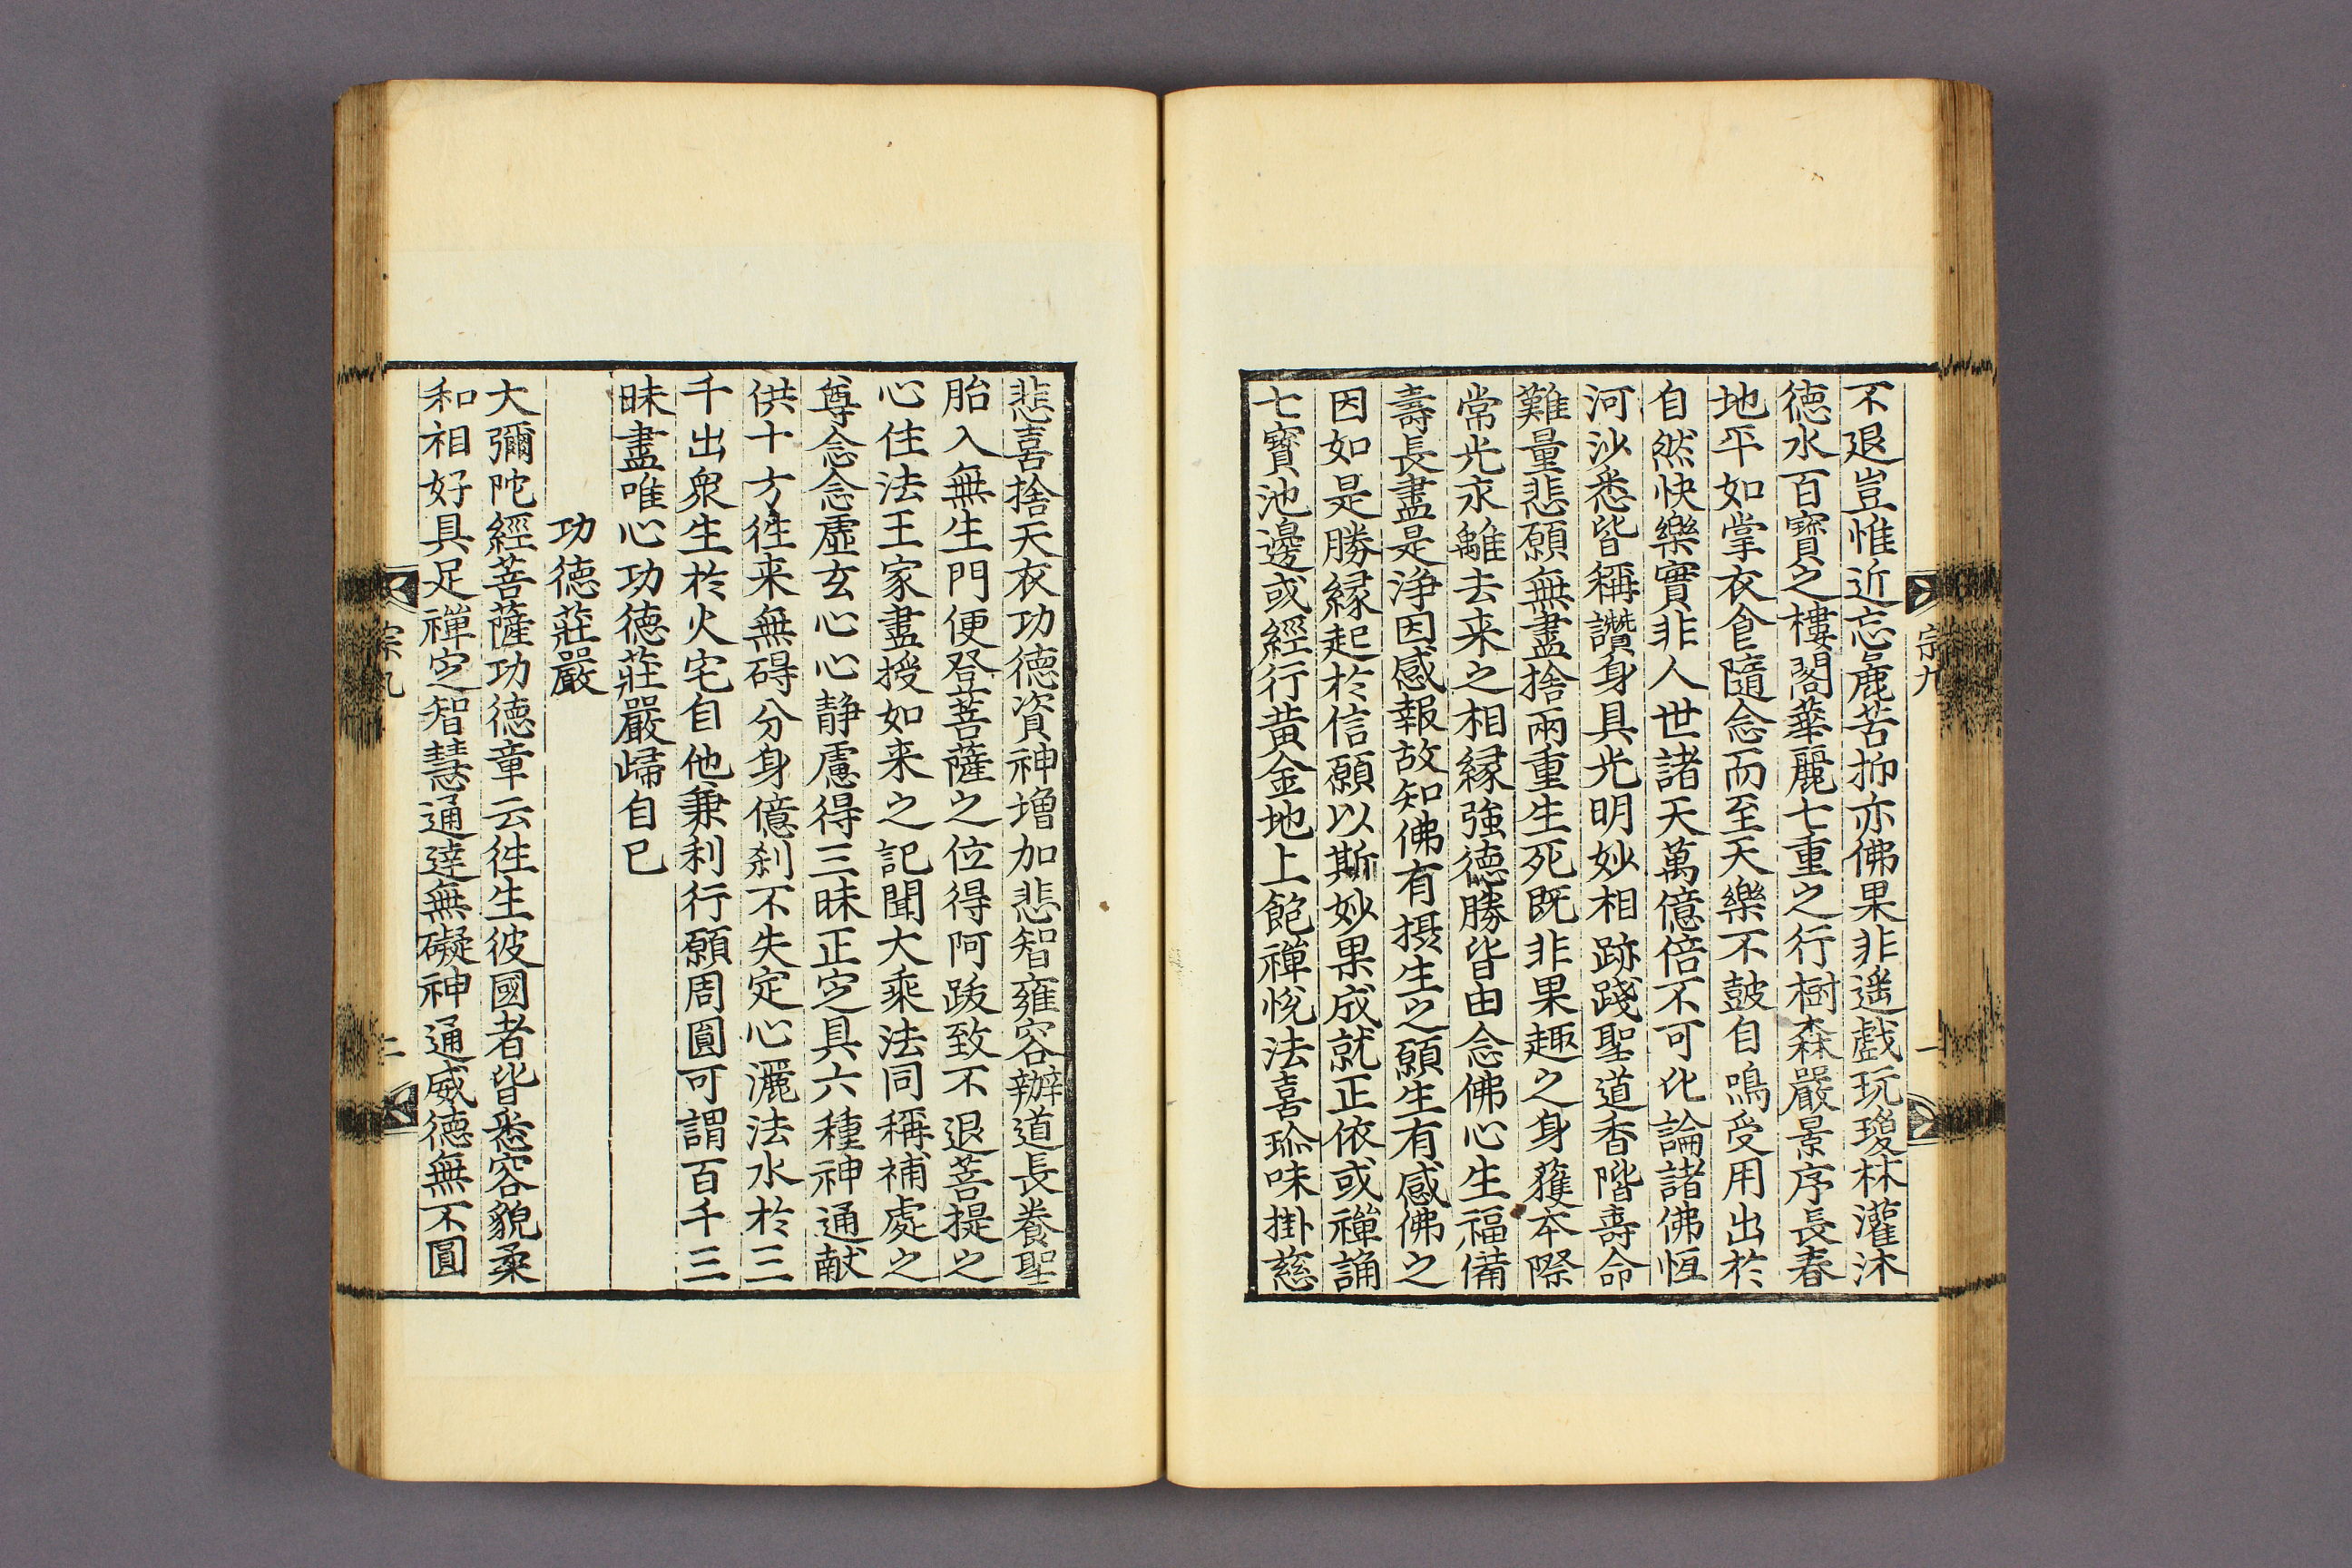 宗九
一
不退豈惟近忘麁苦抑亦佛果非遥戲玩瓊林灌沐
德水百寳之樓閣華麗七重之行樹森嚴景序長春
地平如掌衣食隨念而至天樂不皷自鳴受用出於
自然快樂實非人世諸天萬億倍不可比論諸佛恆
河沙悉皆稱讚身具光明妙相跡踐聖道香階壽命
難量悲願無盡捨兩重生死既非果趣之身獲本際
常光永離去来之相緣強德勝皆由念佛心生福備
壽長盡是淨因感報故知佛有攝生之願生有感佛之
因如是勝緣起於信願以斯妙果成就正依或禪誦
七寳池邊或經行黃金地上飽禪悅法喜珎味掛慈
悲喜捨天衣功德資神增加悲智雍容辦道長養聖
胎入無生門便登菩薩之位得阿跋致不退菩提之
心住法王家盡授如来之記聞大乘法同稱補處之
尊念念虛玄心心静慮得三昧正定具六種神通献
供十方徃来無碍分身億刹不失定心灑法水於三
千出衆生於火宅自他兼利行願周圓可謂百千三
昧盡唯心功德莊嚴歸自已
功德莊嚴
大彌陀經菩薩功德章云徃生彼國者皆悉容貌柔
和相好具足禪定智慧通達無礙神通威德無不圓
宗九
二